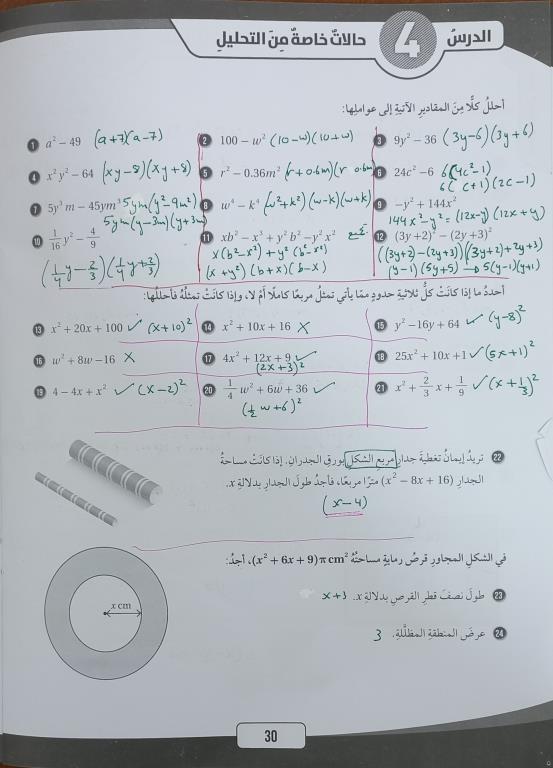 الدرسُ 4 حالاتٌ خاصةٌ مِنَ التحليلِ
أحللُ كلًّا مِنَ المقاديرِ الآتيةِ إلى عواملِها:
1 a² − 49 (a+7)(a−7)
2 100 − w² (10−w)(10+w)
3 9y² − 36 (3y−6)(3y+6)
4 x²y² − 64 (xy−8)(xy+8)
5 r² − 0.36m² (r+0.6m)(r 0.6m)
6 24c² − 6 6(4c²−1)
6( c+1)(2c−1)
7 5y³m − 45ym³ 5ym(y²−9m²)
5ym(y−3m)(y+3m)
8 w⁴ − k⁴ (w²+k²)(w−k)(w+k)
9 −y² + 144x²
144x²−y² = (12x−y)(12x+y)
10 1/16 y² − 4/9
(1/4 y − 2/3)(1/4 y + 2/3)
11 xb² − x³ + y²b² − y²x²
x(b²−x²)+y²(b²−x²)
(x+y²)(b+x)(b−x)
12 (3y+2)² − (2y+3)²
((3y+2)−(2y+3))((3y+2)+2y+3)
(y−1)(5y+5) → 5(y−1)(y+1)
أحددُ ما إذا كانَتْ كلُّ ثلاثيةِ حدودٍ ممّا يأتي تمثلُ مربعًا كاملًا أمْ لا، وإذا كانَتْ تمثلُهُ فأحللُها:
13 x² + 20x + 100 ✓ (x+10)²
14 x² + 10x + 16 ×
15 y² − 16y + 64 ✓ (y−8)²
16 w² + 8w −16 ×
17 4x² + 12x + 9 ✓
(2x+3)²
18 25x² + 10x +1 ✓ (5x+1)²
19 4 − 4x + x² ✓ (x−2)²
20 1/4 w² + 6w + 36 ✓
(1/2 w+6)²
21 x² + 2/3 x + 1/9 ✓ (x+1/3)²
22 تريدُ إيمانُ تغطيةَ جدارٍ مربعِ الشكلِ بورقِ الجدرانِ. إذا كانَتْ مساحةُ
الجدارِ (x² − 8x + 16) مترًا مربعًا، فأجدُ طولَ الجدارِ بدلالةِ x.
(x−4)
في الشكلِ المجاورِ قرصُ رمايةٍ مساحتُهُ (x² + 6x + 9)π cm²، أجدُ:
23 طولَ نصفِ قطرِ القرصِ بدلالةِ x. x+3
24 عرضَ المنطقةِ المظلَّلةِ. 3
x cm
30